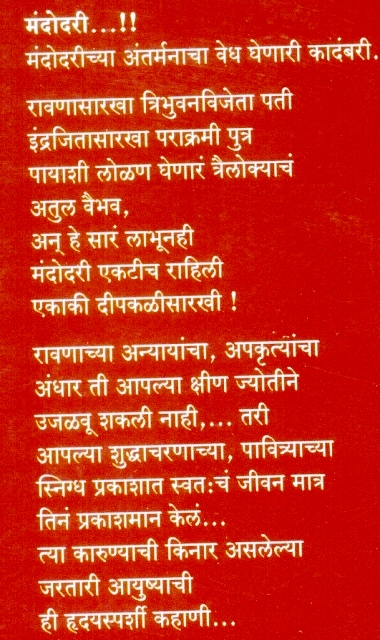 मंदोदरी...!!
मंदोदरीच्या अंतर्मनाचा वेध घेणारी कादंबरी.
रावणासारखा त्रिभुवनविजेता पती
इंद्रजितासारखा पराक्रमी पुत्र
पायाशी लोळण घेणारं त्रैलोक्याचं
अतुल वैभव,
अन् हे सारं लाभूनही
मंदोदरी एकटीच राहिली
एकाकी दीपकळीसारखी !
रावणाच्या अन्यायांचा, अपकृत्यांचा
अंधार ती आपल्या क्षीण ज्योतीने
उजळवू शकली नाही,... तरी
आपल्या शुद्धाचरणाच्या, पावित्र्याच्या
स्निग्ध प्रकाशात स्वत:चं जीवन मात्र
तिनं प्रकाशमान केलं...
त्या कारुण्याची किनार असलेल्या
जरतारी आयुष्याची
ही हृदयस्पर्शी कहाणी...